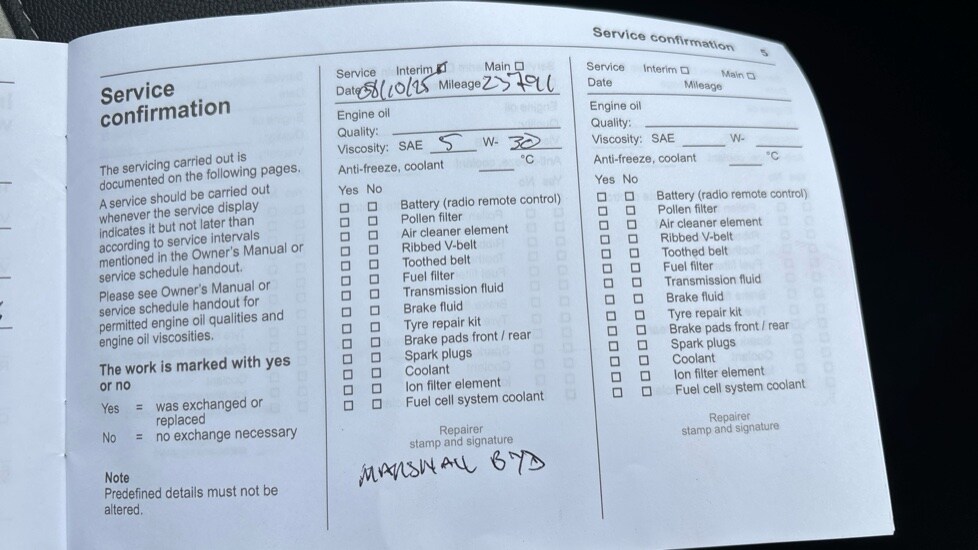 Service confirmation 5
Service
confirmation
The servicing carried out is
documented on the following pages.
A service should be carried out
whenever the service display
indicates it but not later than
according to service intervals
mentioned in the Owner's Manual or
service schedule handout.
Please see Owner's Manual or
service schedule handout for
permitted engine oil qualities and
engine oil viscosities.
The work is marked with yes
or no
Yes = was exchanged or
replaced
No = no exchange necessary
Note
Predefined details must not be
altered.
Service Interim Main
Date 08/10/25 Mileage
Engine oil
Quality:
Viscosity: SAE 5 W- 30
Anti-freeze, coolant °C
Yes No
Battery (radio remote control)
Pollen filter
Air cleaner element
Ribbed V-belt
Toothed belt
Fuel filter
Transmission fluid
Brake fluid
Tyre repair kit
Brake pads front / rear
Spark plugs
Coolant
Ion filter element
Fuel cell system coolant
Repairer
stamp and signature
MARSHALL BYD
Service Interim Main
Date Mileage
Engine oil
Quality:
Viscosity: SAE W-
Anti-freeze, coolant °C
Yes No
Battery (radio remote control)
Pollen filter
Air cleaner element
Ribbed V-belt
Toothed belt
Fuel filter
Transmission fluid
Brake fluid
Tyre repair kit
Brake pads front / rear
Spark plugs
Coolant
Ion filter element
Fuel cell system coolant
Repairer
stamp and signature